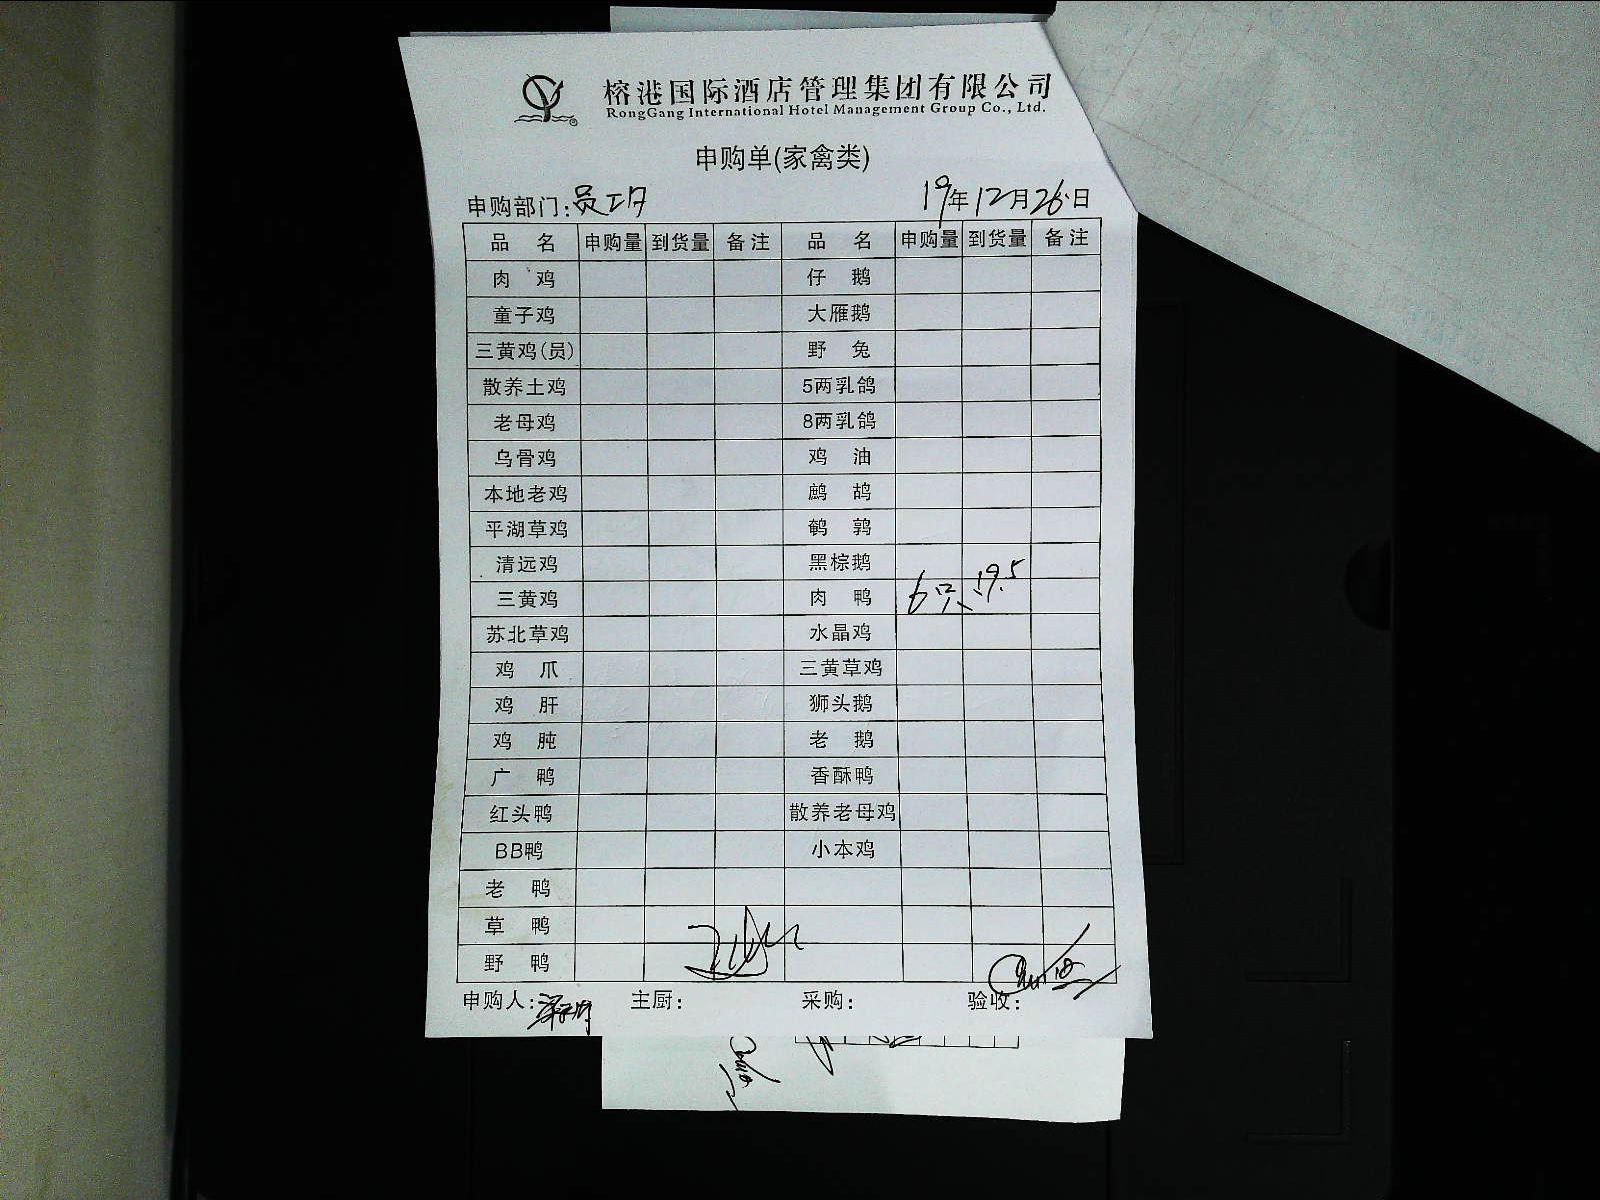 榕港国际酒店管理集团有限公司
RongGang International Hotel Management Group Co., Ltd.
申购单(家禽类)
申购部门:员工 19年12月26日
品名 申购量 到货量 备注 品名 申购量 到货量 备注
肉鸡 仔鹅
童子鸡 大雁鹅
三黄鸡(员) 野兔
散养土鸡 5两乳鸽
老母鸡 8两乳鸽
乌骨鸡 鸡油
本地老鸡 鹧鸪
平湖草鸡 鹌鹑
清远鸡 黑棕鹅
三黄鸡 肉鸭 6只 19.5
苏北草鸡 水晶鸡
鸡爪 三黄草鸡
鸡肝 狮头鹅
鸡肫 老鹅
广鸭 香酥鸭
红头鸭 散养老母鸡
BB鸭 小本鸡
老鸭
草鸭
野鸭
申购人: 主厨: 采购: 验收: